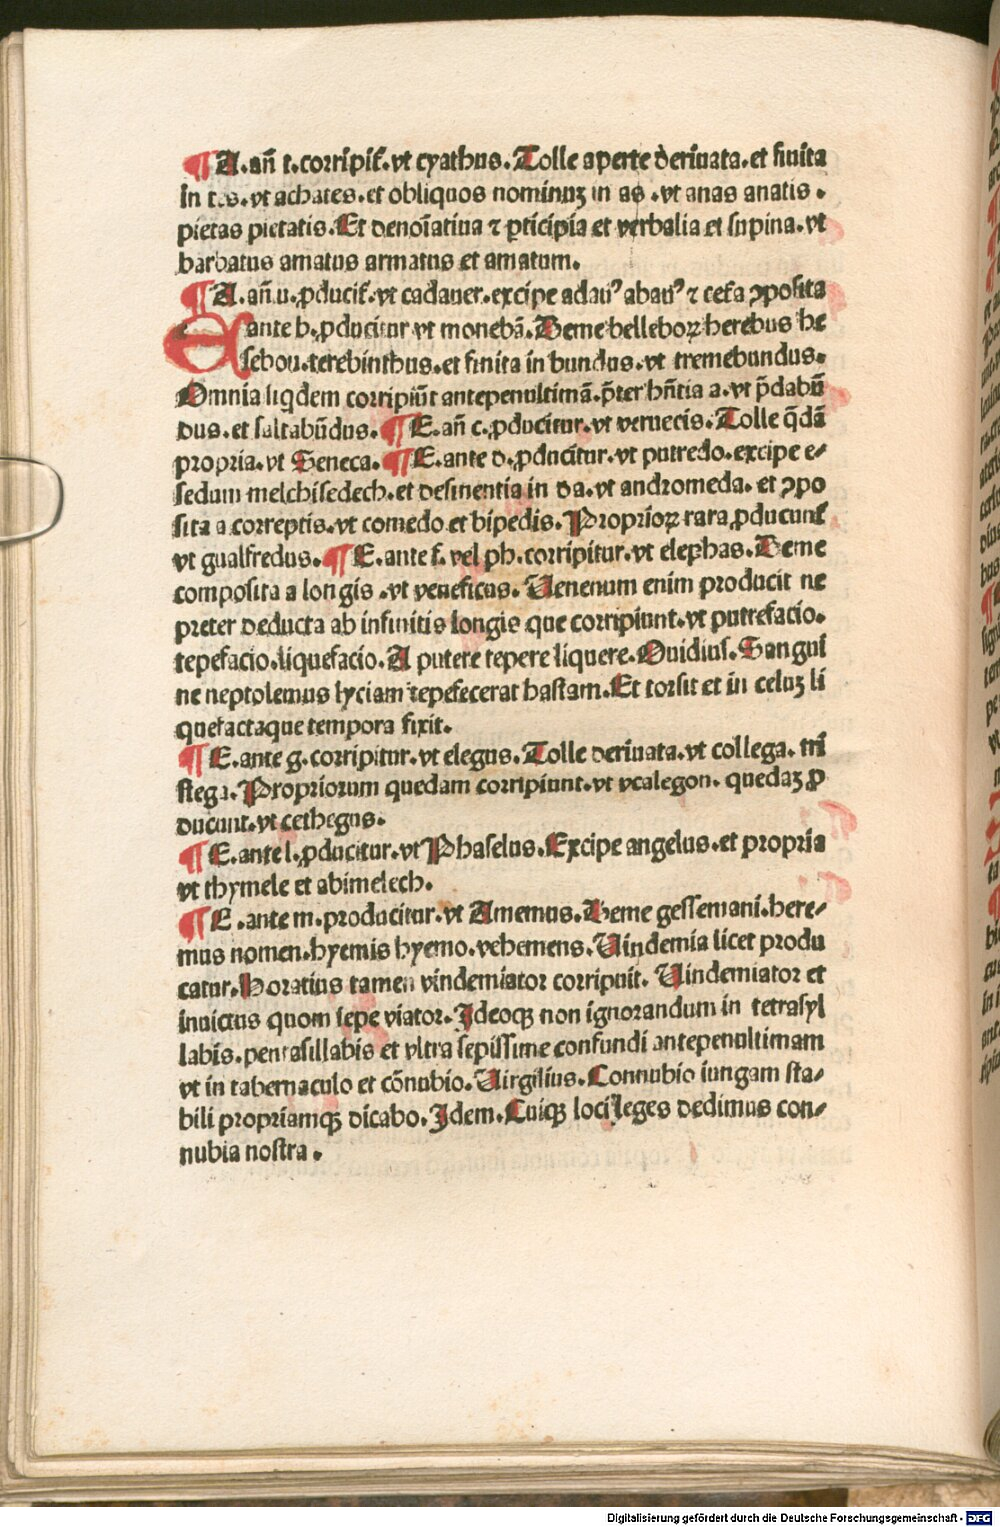 ¶ A. añ t. corripit̃. vt cyathus. Tolle aperte deriuata. et finita
in t.s. vt achates. et obliquos nominuꝫ in as . vt anas anatis .
pietas pietatis. Et denoiãtiua ⁊ ꝑticipia et verbalia et supina. vt
barbatus amatus armatus et amatum.
¶ A. añ u. ꝓducit̃. vt cadauer. excipe adauꝰ abauꝰ ⁊ cet̃a ꝯposita
E ante b. ꝓducitur vt monebã. Deme belleboꝝ herebus he
lebou. terebinthus. et finita in bundus. vt tremebundus.
Omnia liq̇dem corripiũt antepenultimã. p̃ter hñtia a. vt p̃dabũ
dus. et saltabũdus. ¶ E. añ c. ꝓducitur. vt veruecis. Tolle q̃dã
propria. vt Seneca. ¶ E. ante d. ꝓducitur. vt putredo. excipe e⸗
sedum melchisedech. et desinentia in da. vt andromeda. et ꝯpo
sita a correptis. vt comedo et bipedis. Proprioꝝ rara ꝓducunt̃
vt gualfredus. ¶ E. ante f. vel ph. corripitur. vt elephas. Deme
composita a longis . vt veneficus. Uenenum enim producit ne
preter deducta ab infinitis longis que corripiunt. vt putrefacio.
tepefacio. liquefacio. A putere tepere liquere. Ouidius. Sangui
ne neptolemus lyciam tepefecerat hastam. Et torsit et in celuꝫ li
quefactaque tempora fixit.
¶ E. ante g. corripitur. vt elegus. Tolle deriuata. vt collega. tri
stega. Propriorum quedam corripiunt. vt vcalegon. quedaꝫ ꝓ
ducunt. vt cethegus.
¶ E. ante l. ꝓducitur. vt Phaselus. Excipe angelus. et propria
vt thymele et abimelech.
¶ E . ante m. producitur. vt Amemus. Deme gessemani. here⸗
mus nomen. hyemis hyemo. vehemens. Uindemia licet produ
catur. Horatius tamen vindemiator corripuit. Uindemiator et
inuictus quom sepe viator. Ideoqꝫ non ignorandum in tetrasyl
labis. pentasillabis et vltra sepissime confundi antepenultimam
vt in tabernaculo et cõnubio. Uirgilius. Connubio iungam sta⸗
bili propriamqꝫ dicabo. Idem. Cuiqꝫ loci leges dedimus con⸗
nubia nostra .
Digitalisierung gefördert durch die Deutsche Forschungsgemeinschaft - DFG